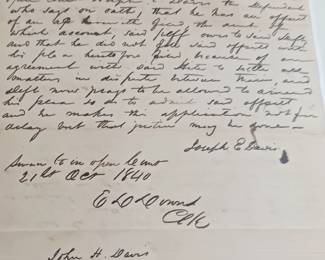 who says on oath, that he has an offset
of an left herewith filed, the amt of
which account, said plff owes to said deft
and that he did not file said offset with
his plea heretofore filed because of an
agreement with said to with all
matters in dispute between them, and
deft now prays to be allowed to amend
his plea so as to admit said offset
and he makes this application not for
delay but that justice may be done—
Joseph E Davis
Sworn to in open Court
21st Oct 1840
E D Downd
Clk
John H. Davis